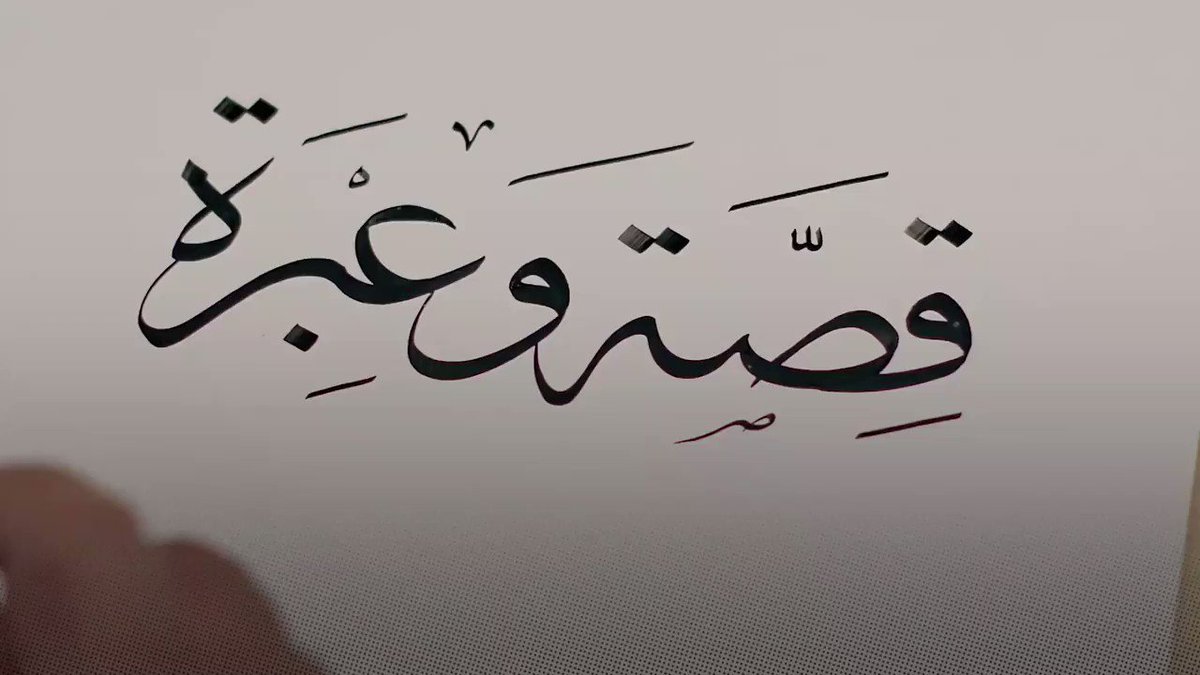 قِصَّة وَعِبْرَة